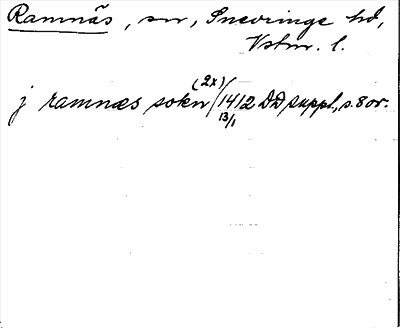 Ramnäs, sn, Snevringe hd,
Vstm. l.
j ramnæs sokn (2x) 1412 13/1 DD suppl., s. 80v.